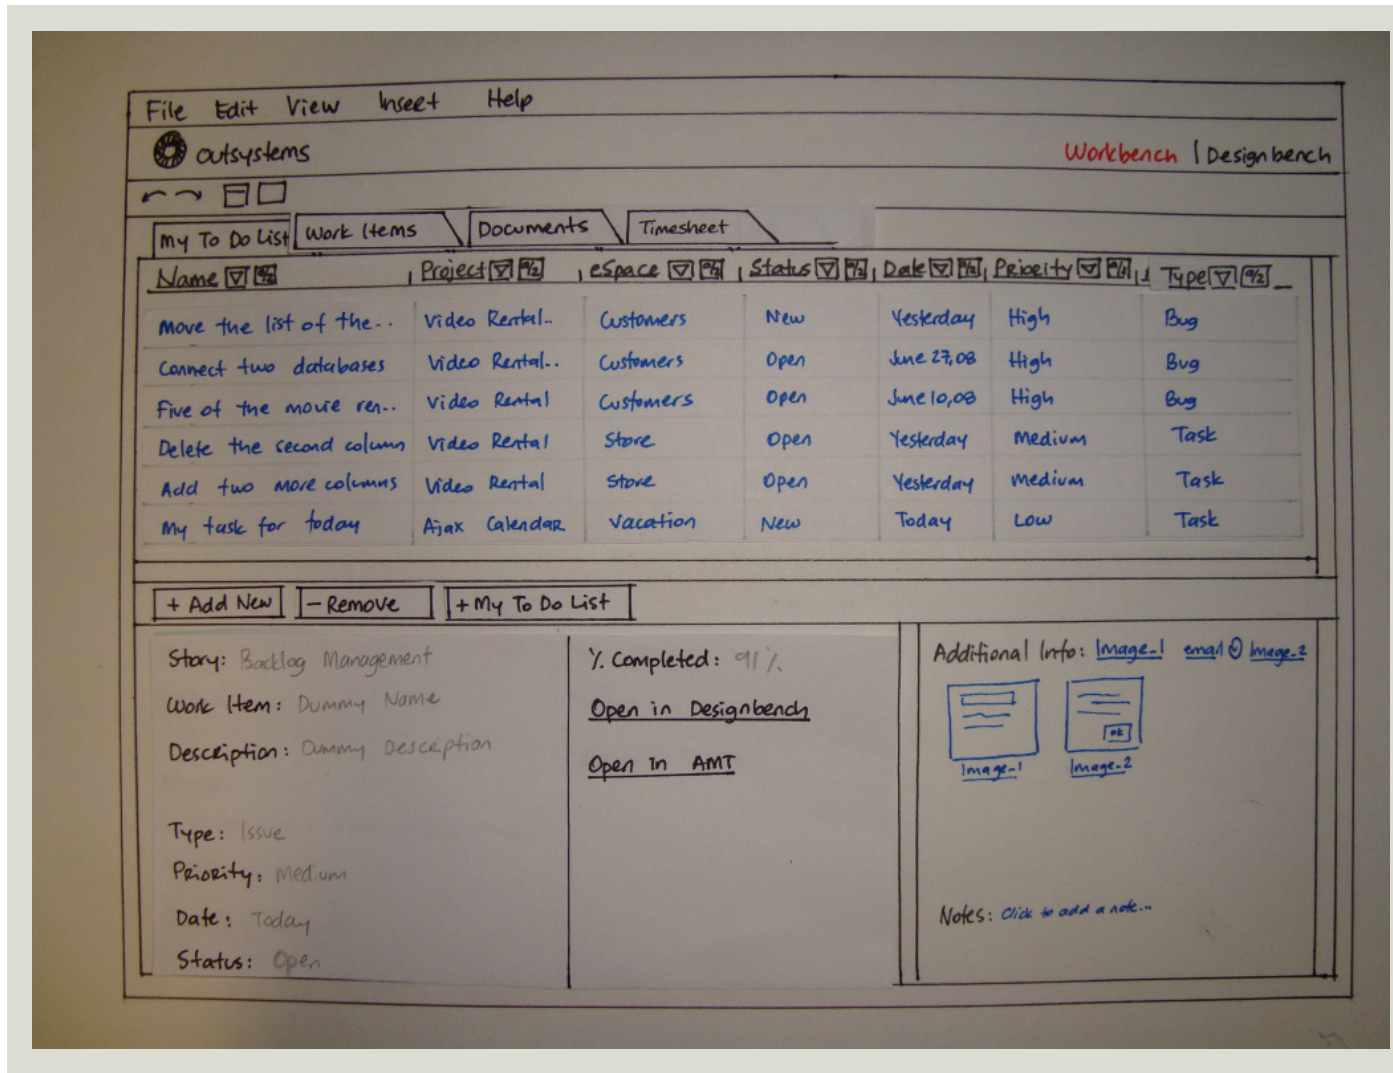 File Edit View Insert Help
outsystems Workbench | Designbench
My To Do List Work Items Documents Timesheet
Name Project eSpace Status Date Priority Type
Move the list of the... Video Rental.. Customers New Yesterday High Bug
Connect two databases Video Rental.. Customers Open June 27,08 High Bug
Five of the movie ren... Video Rental Customers Open June 10,08 High Bug
Delete the second column Video Rental Store Open Yesterday Medium Task
Add two more columns Video Rental Store Open Yesterday Medium Task
My task for today Ajax Calendar Vacation New Today Low Task
+ Add New - Remove + My To Do List
Story: Backlog Management
Work Item: Dummy Name
Description: Dummy Description
Type: Issue
Priority: Medium
Date: Today
Status: Open
% Completed: 91%
Open in Designbench
Open in AMT
Additional Info: Image_1 email Image_2
OK
Image_1 Image_2
Notes: Click to add a note...